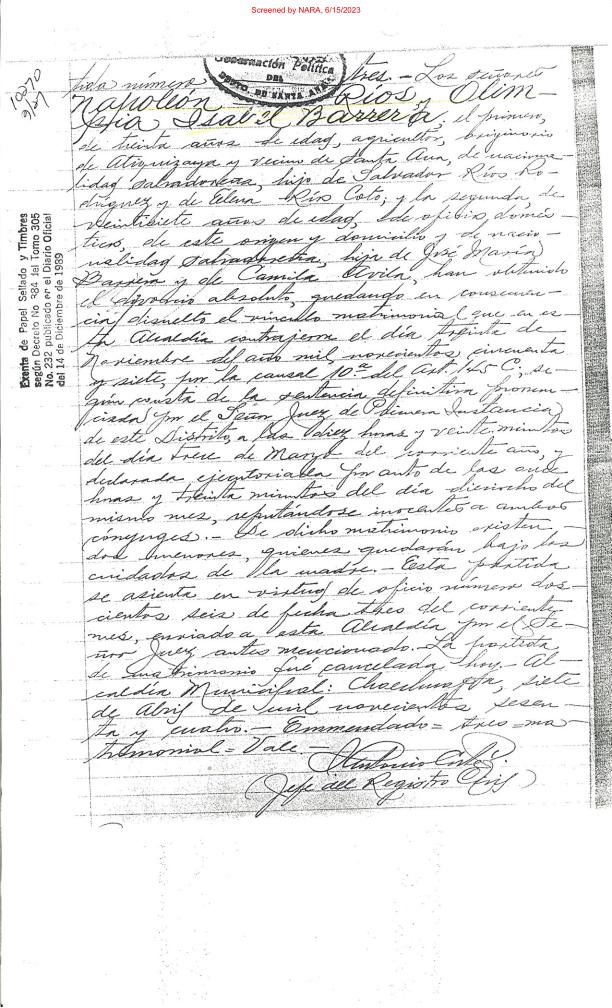 Screened by NARA, 6/15/2023
10270
9/27
Gobernación Política
DEL
DEPTO. DE SANTA ANA
tida número tres.- Los señores
Napoleón Ríos y Olim-
pia Isabel Barrera, el primero,
de treinta años de edad, agricultor, originario
de Atiquizaya y vecino de Santa Ana, de naciona-
lidad salvadoreña, hijo de Salvador Ríos Ro-
dríguez y de Elena Ríos Coto; y la segunda, de
veintisiete años de edad, de oficios domés-
ticos, de este origen y domicilio y de nacio-
nalidad salvadoreña, hija de José María
Barrera y de Camila Avila, han obtenido
el divorcio absoluto, quedando en consecuen-
cia disuelto el vínculo matrimonial que en es-
ta Alcaldía contrajeron el día treinta de
Noviembre del año mil novecientos cincuenta
y siete, por la causal 10ª del Art. 145 C., se-
gún consta de la sentencia definitiva pronun-
ciada por el Señor Juez de Primera Instancia
de este Distrito, a las diez horas y veinte minutos
del día trece de Marzo del corriente año, y
declarada ejecutoriada por auto de las once
horas y treinta minutos del día dieciocho del
mismo mes, reputándose inocentes a ambos
cónyuges.- De dicho matrimonio existen
dos menores, quienes quedarán bajo los
cuidados de la madre.- Esta partida
se asienta en virtud de oficio número dos-
cientos seis de fecha tres del corriente
mes, enviado a esta Alcaldía por el Se-
ñor Juez antes mencionado. La partida
de matrimonio fué cancelada hoy.- Al-
caldía Municipal: Chalchuapa, siete
de Abril de mil novecientos sesen-
ta y cuatro.- Enmendado = tres = ma-
trimonial = Vale -
Antonio
Jefe del Registro Civil
Exenta de Papel Sellado y Timbres
según Decreto No. 384 del Tomo 305
No. 232 publicado en el Diario Oficial
del 14 de Diciembre de 1989